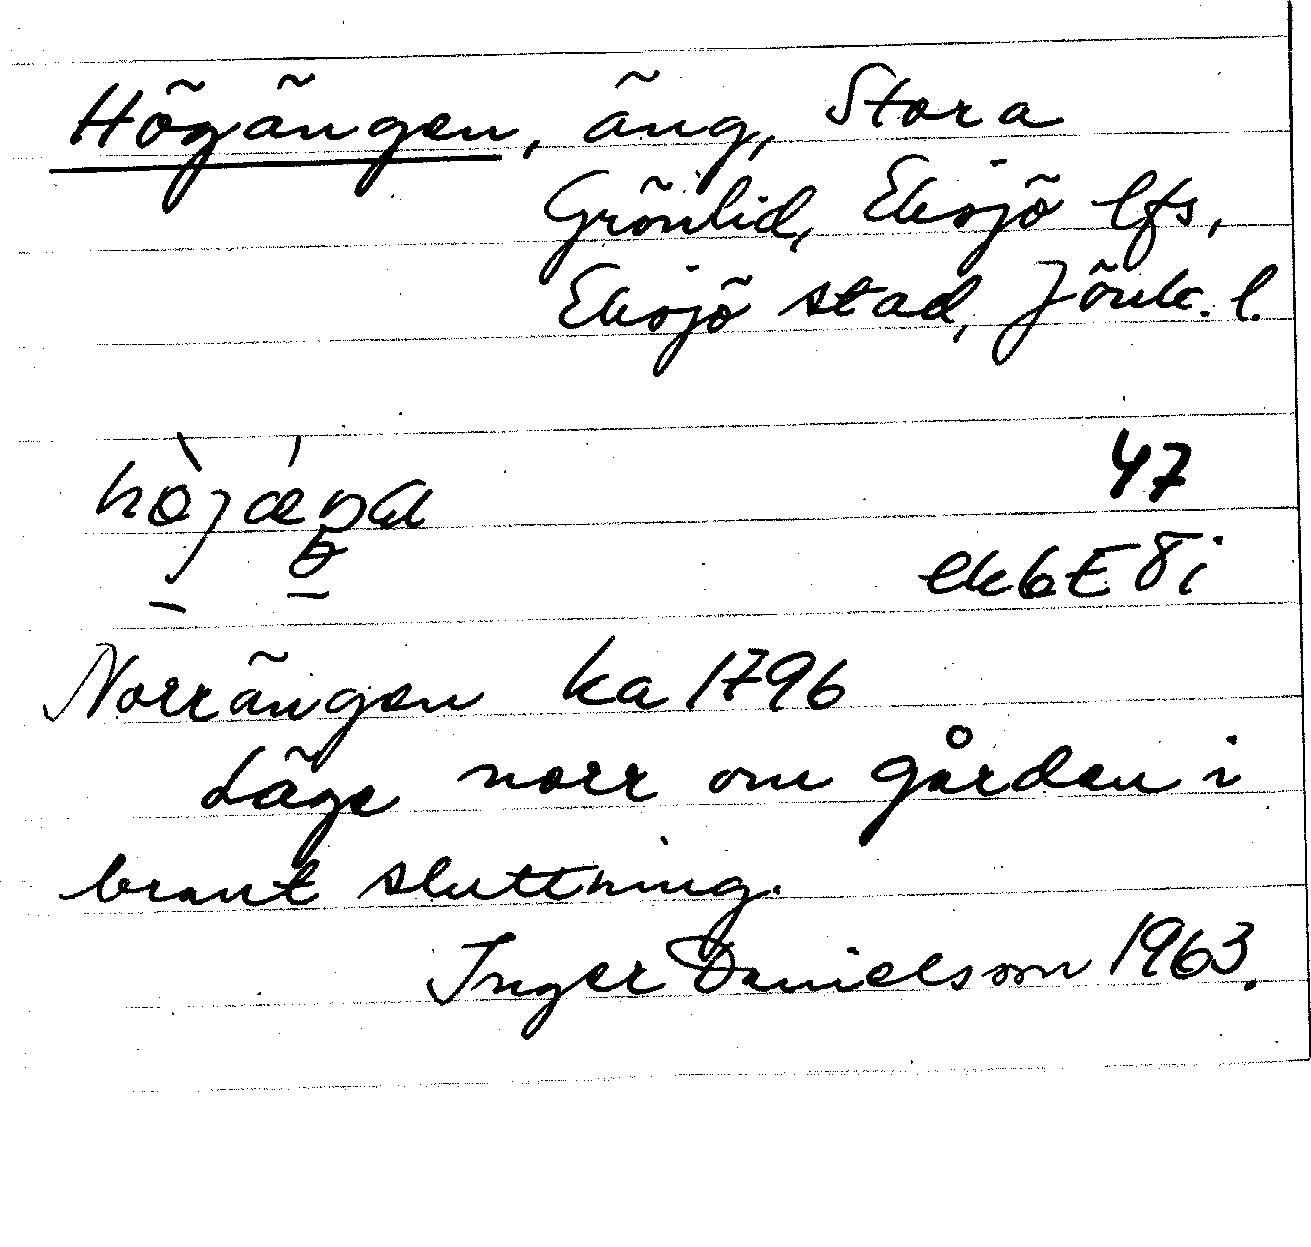 Högängen, äng, Stora
Grönlid, Eksjö lfs,
Eksjö stad, Jönk. l.
47
ek 6 E 8 i
Norrängen ka 1796
Läge norr om gården i
brant sluttning.
Inger Danielsson 1963.